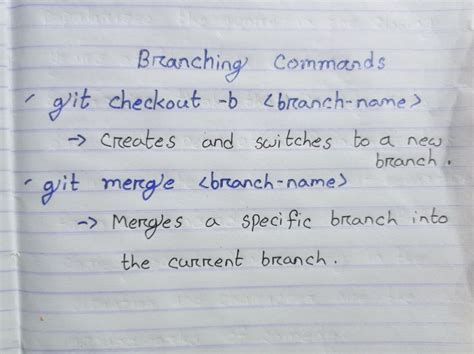 Branching Commands
git checkout -b <branch-name>
→ Creates and switches to a new
branch.
git merge <branch-name>
→ Merges a specific branch into
the current branch.